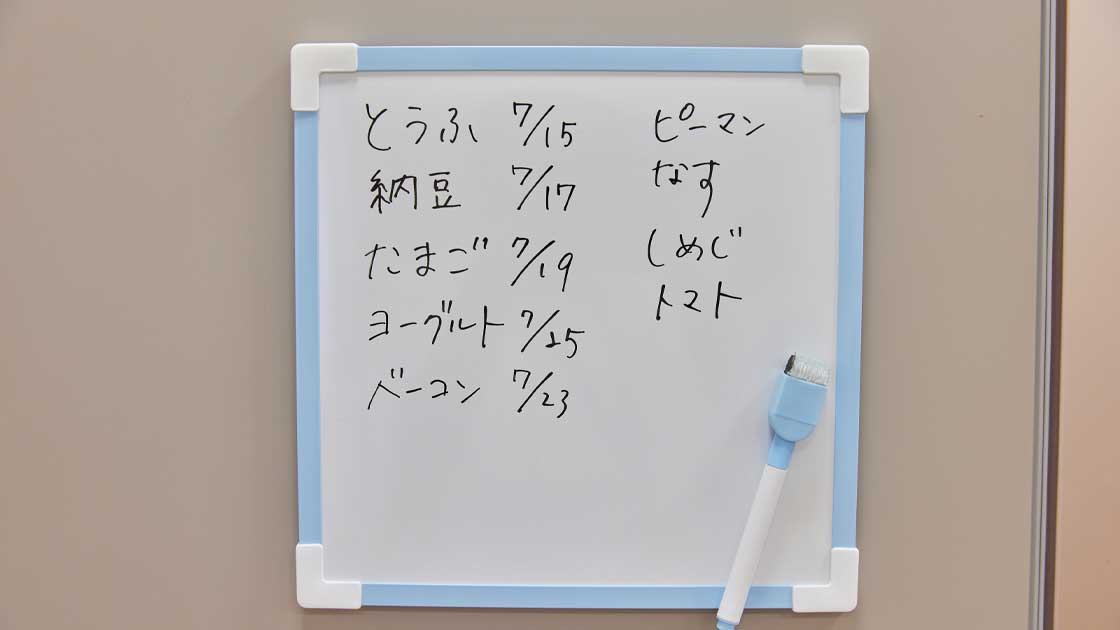 とうふ 7/15
納豆 7/17
たまご 7/19
ヨーグルト 7/25
ベーコン 7/23
ピーマン
なす
しめじ
トマト